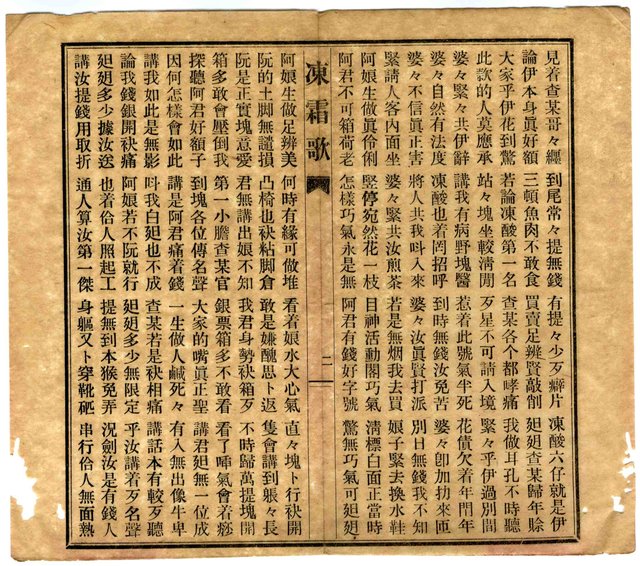 見着查某哥々纏 到尾常々提無錢 有提々少歹癖片 凍酸六仔就是伊
論伊本身真好額 三頓魚肉不敢食 買賣足辨賢敲削 廻廻查某歸年賒
大家乎伊花到驚 若論凍酸第一名 查某各个都哮痛 我做耳孔不時聽
此款的人莫應承 站々塊坐較清閒 歹星不可請入境 緊々乎伊過別間
婆々緊々共伊辭 講我有病野塊醫 惹着此號氣半死 花債欠着年閂年
婆々自然有法度 凍酸也着罔招呼 到時無錢汝免苦 婆々卽加扐來匝
婆々不信真正害 將人共我呌入來 婆々汝真賢打派 別日無錢我不知
緊請人客內面坐 婆々緊共汝煎茶 若是無烟我去買 娘子緊去換水鞋
阿娘生做真伶俐 竪停宛然花一枝 目神活動閣巧氣 清標白面正當時
阿君不可箱荷老 怎樣巧氣永是無 阿君有錢好字號 驚無巧氣可廻廻
凍霜歌 二
阿娘生做足辨美 何時有緣可做堆 看着娘水大心氣 直々塊卜行袂開
阮的土脚無譴損 凸椅也袂粘脚倉 敢是嫌醜思卜返 隻會講到躼々長
阮是正實塊意愛 君無講出娘不知 我君身勢袂箱歹 不時歸萬提塊開
箱多敢會壓倒我 第一小膽查某官 銀票箱多不敢看 看了啼氣會着痧
探聽阿君好額子 到塊各位傳名聲 大家的嘴真正聖 講君廻無一位成
因何怎樣會如此 講是阿君痛着錢 一生做人鹹死々 有入無出像牛卑
講我如此是無影 呌我白廻也不成 查某若是袂相痛 講話本有較歹聽
論我錢銀開袂痛 阿娘若不阮就行 廻廻多少無限定 乎汝講着歹名聲
廻廻多少據汝送 也着佮人照起工 提無到本猴免弄 況劍汝是有錢人
講汝提錢用取折 通人算汝第一傑 身軀又卜穿靴硘 串行佮人無面熱